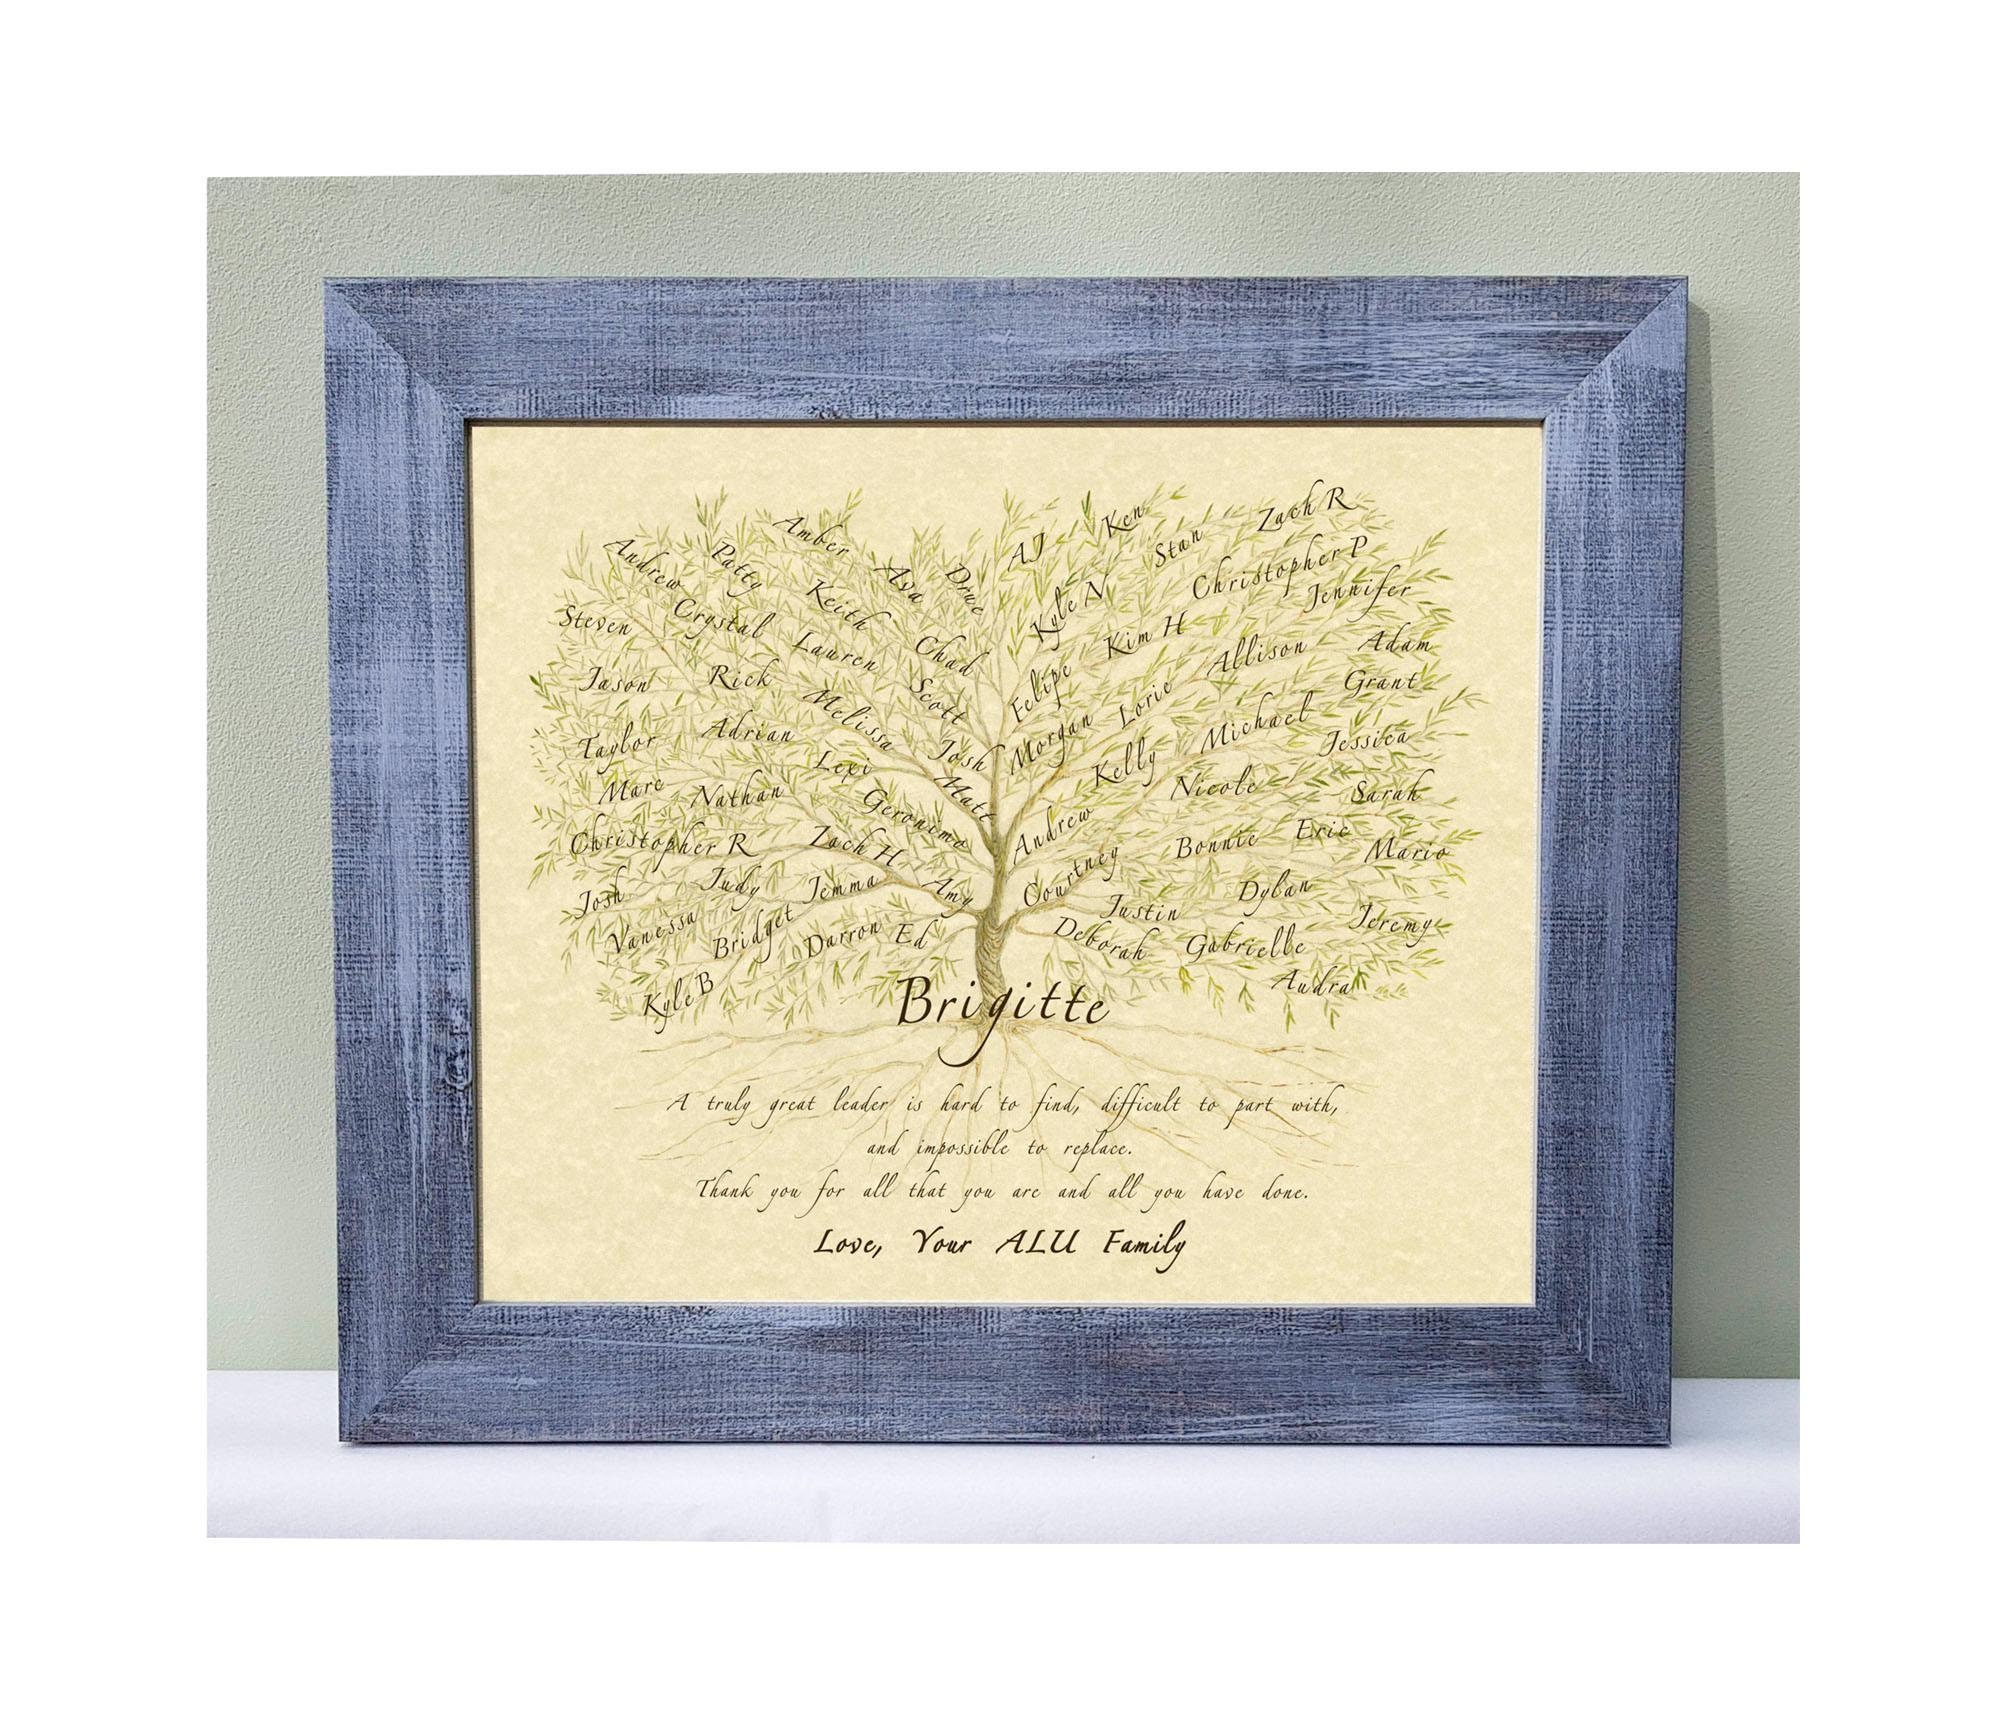 Zach R
Ken
Amber
AJ
Stan
Andrew
Patty
Ava
Drue
Christopher P
Keith
Kyle N
Jennifer
Steven
Crystal
Lauren
Chad
Kim H
Allison
Adam
Jason
Rick
Scott
Felipe
Lorie
Grant
Melissa
Morgan
Michael
Taylor
Adrian
Lexi
Josh
Kelly
Jessica
Marc
Nathan
Matt
Nicole
Sarah
Geronimo
Andrew
Eric
Christopher R
Zach H
Bonnie
Mario
Judy
Jemma
Amy
Courtney
Dylan
Josh
Justin
Vanessa
Bridget
Darron
Ed
Deborah
Gabrielle
Jeremy
Kyle B
Audra
Brigitte
A truly great leader is hard to find, difficult to part with,
and impossible to replace.
Thank you for all that you are and all you have done.
Love, Your ALU Family